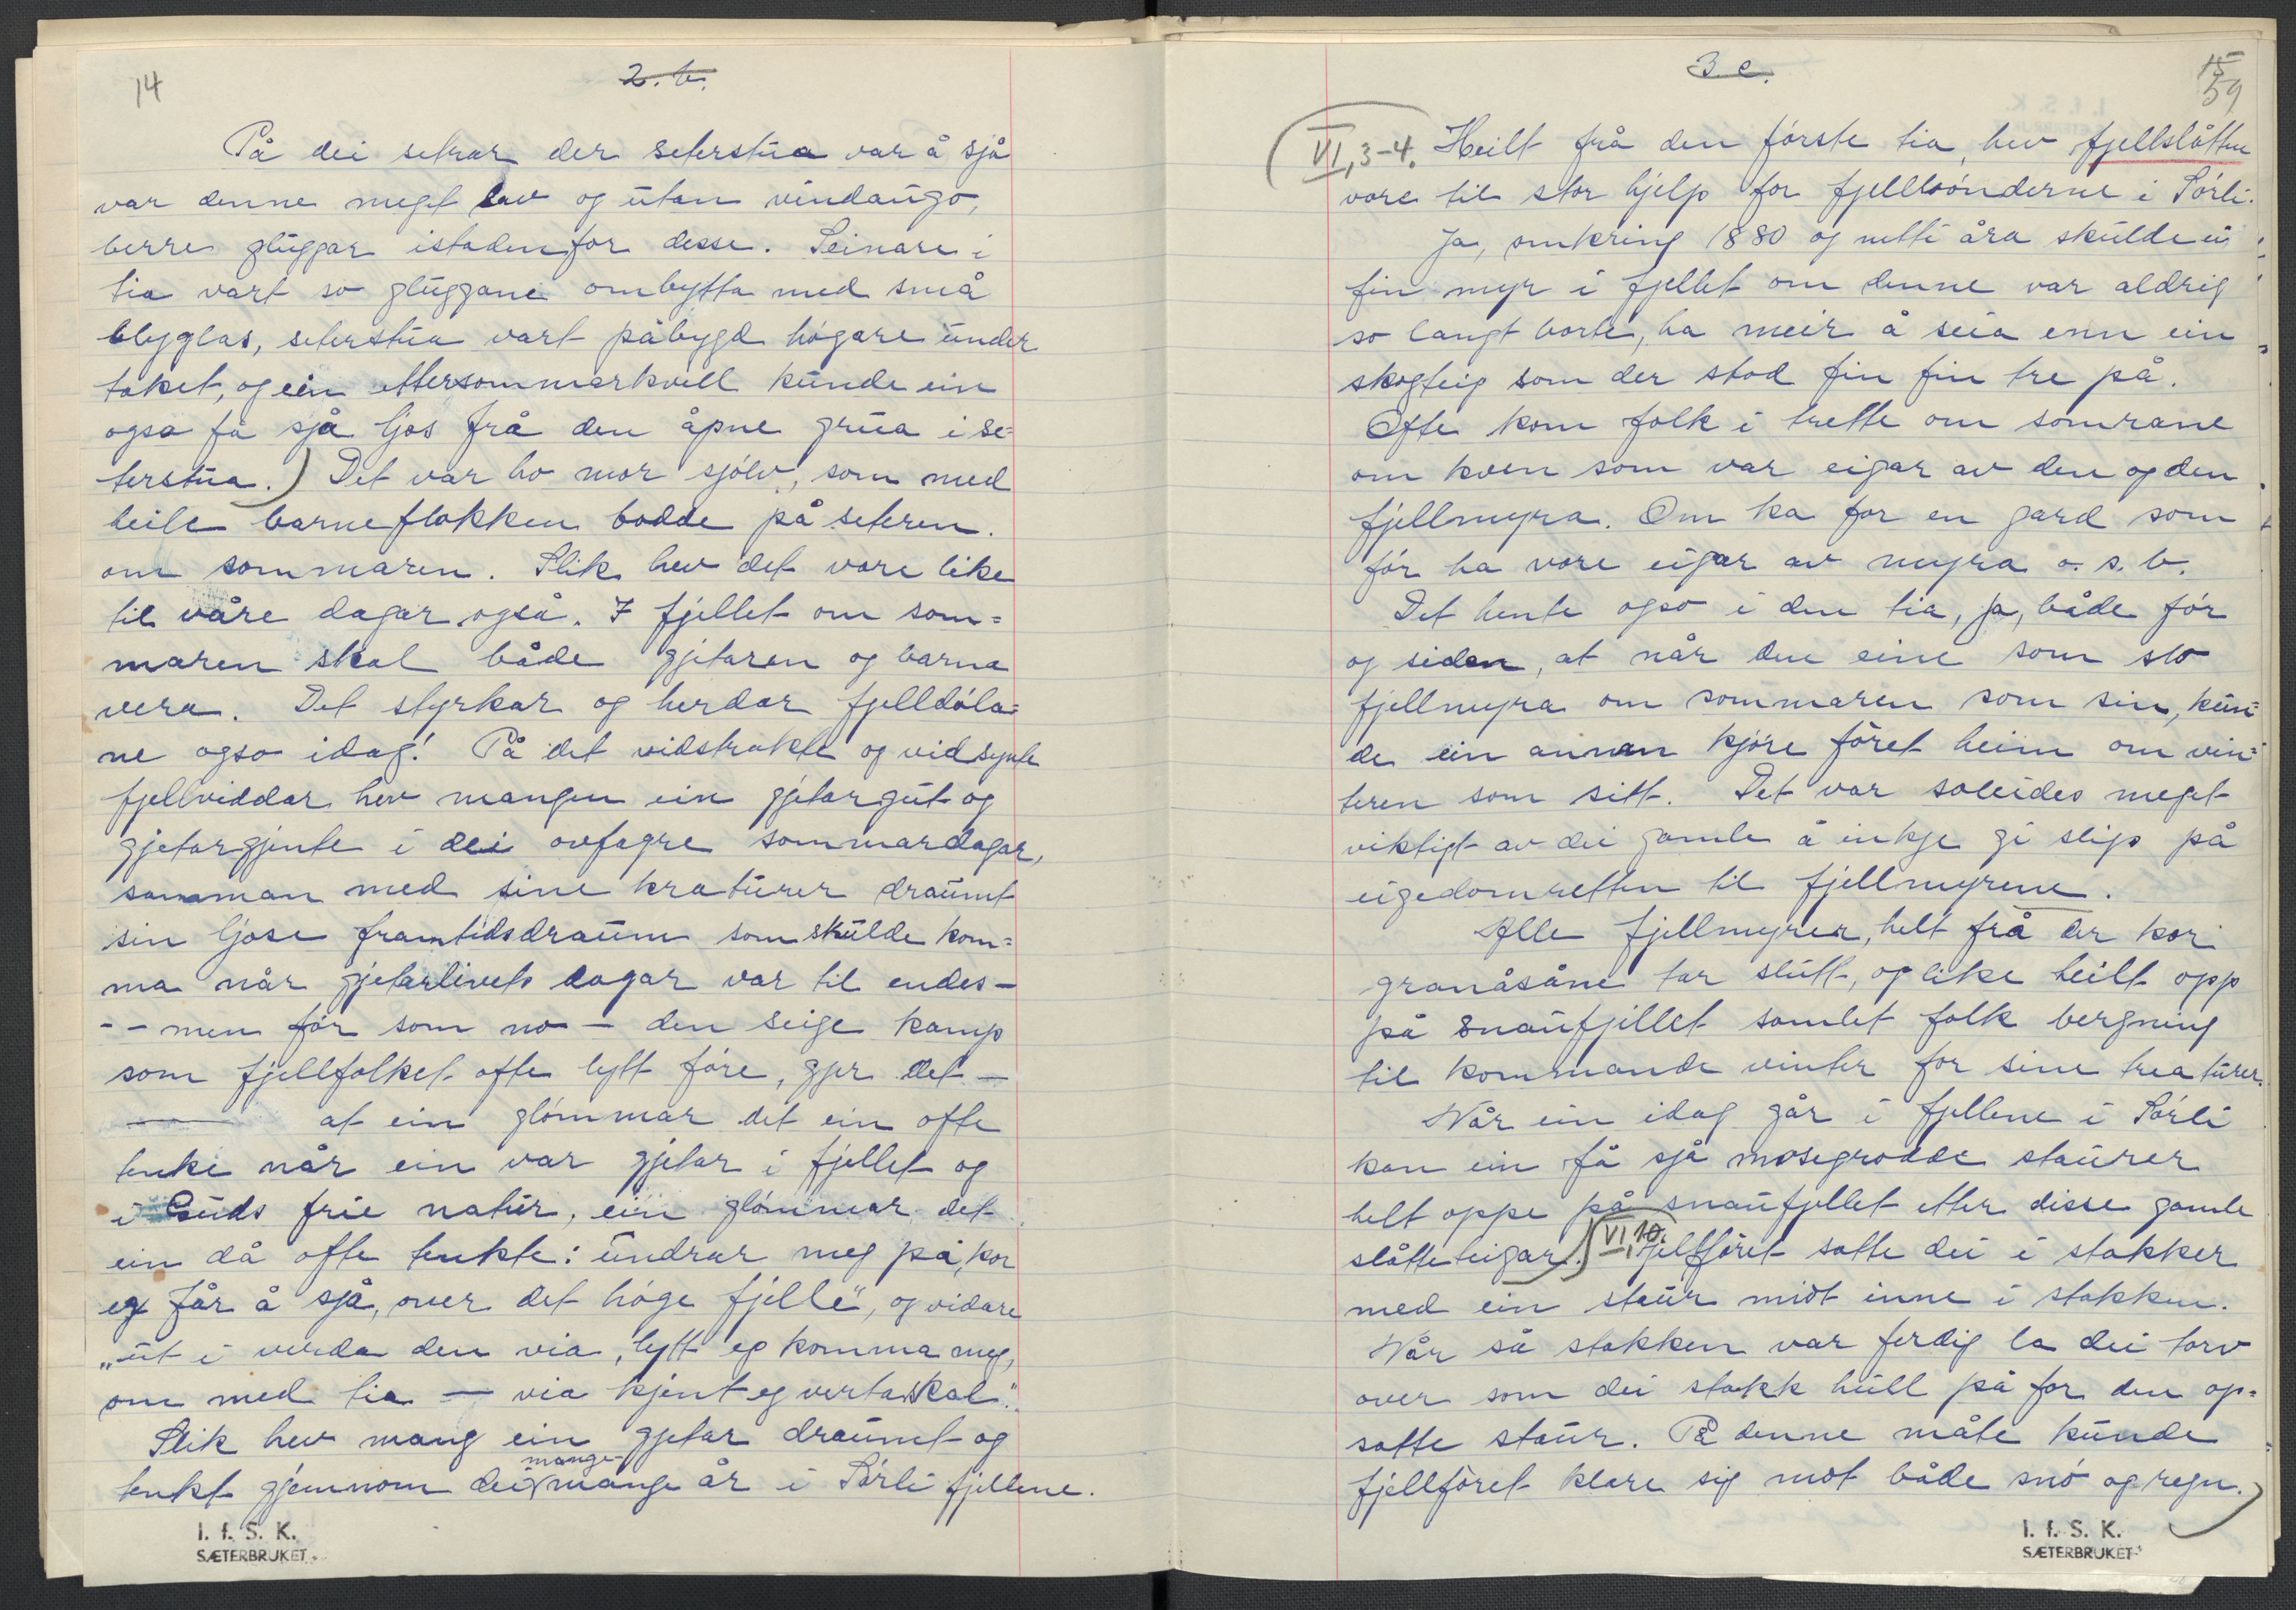 14
2. b.
På dei setrar der seterstua var å sjå
var denne meget lav og utan vindaugo,
berre gluggar istadenfor desse. Seinare i
tia vart so gluggane ombytta med små
blyglas, seterstua vart påbygd högare under
taket, og ein ettersommarkvell kunde ein
også få sjå ljos frå den åpne grua i se-
terstua.) Det var ho mor sjölv, som med
heile barneflokken bodde på seteren.
om sommaren. Slik hev det vore like
til våre dagar også. I fjellet om som-
maren skal både gjetaren og barna
vera. Det styrkar og herdar fjelldöla-
ne ogso idag! På det vidstrakte og vidsynte
fjellviddar hev mangen ein gjetargut og
gjetargjente i dei ovfagre sommardagar,
samman med sine kraturer draumt
sin ljose framtidsdraum som skulde kom-
ma når gjetarlivets dagar var til endes -
- - men för som no - den seige kamp
som fjellfolket ofte lytt före, gjer det -
— at ein glömmar det ein ofte
tenkte når ein var gjetar i fjellet og
i Guds frie natur, ein glömmar det
ein då ofte tenkte: undrar meg på, kor
eg får å sjå, over det höge fjelle", og vidare
„ut i verda den via, lytt eg komma meg,
om med tia — via kjent eg verta skal".
Slik hev mang ein gjetar draumt og
mange
tenkt gjennom dei mange år i Sörli fjellene.
I. f. S. K.
SÆTERBRUKET
3 c.
15
59
VI, 3-4. Heilt frå den förste tia, hev fjellslåtten
vore til stor hjelp for fjellbönderne i Sörli.
Ja, omkring 1880 og nitti åra skulde ei
fin myr i fjellet om denne var aldrig
so langt borte, ha meir å seia enn ein
skogteig som der stod fin fin tre på.
Ofte kom folk i trette om somrane
om kven som var eigar av den og den
fjellmyra. Om ka for en gard som
för ha vore eigar av myra o. s. v.
Det hente ogso i den tia, ja, både för
og siden, at når den eine som slo
fjellmyra om sommaren som sin, kun-
de ein annan kjöre föret heim om vin-
teren som sitt. Det var soleides meget
viktigt av dei gamle å inkje gi slip på
eigedomretten til fjellmyrene.
Alle fjellmyrer, helt frå der kor
granåsåne tar slutt, og like heilt opp
på snaufjillet samlet folk bergning
til kommande vinter for sine kreaturer.
Når ein idag går i fjellene i Sörli
kan ein få sjå mosegrodde staurer
helt oppe på snaufjellet etter disse gamle
slåtteteigar.) VI, 10. Fjellföret satte dei i stakker
med ein staur midt inne i stakken.
Når så stakken var ferdig la dei torv
over som dei stakk hull på for den op-
satte staur. På denne måte kunde
fjellföret klare sig mot både snö og regn.)
I. f. S. K.
SÆTERBRUKET